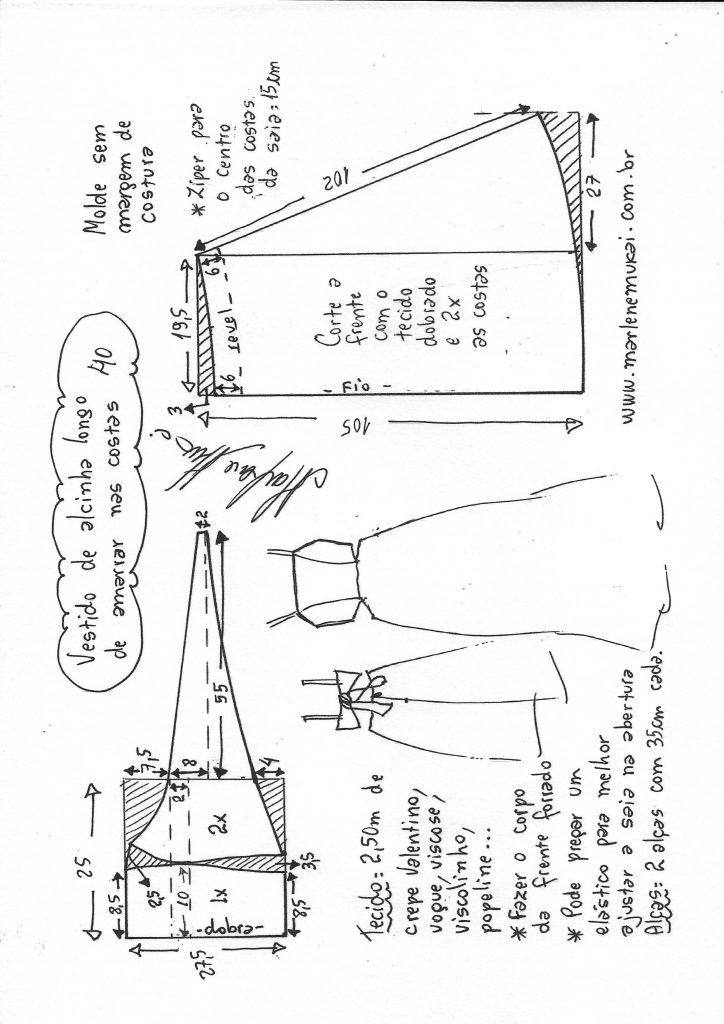 Vestido de alcinha longo
de amarrar nas costas 40
Molde sem
margem de
costura
* Ziper para
o centro
das costas
da saia: 15cm
25
8,5
7,5
2,5
8
2
10
1x
2x
-dobra-
27,5
8,5
3,5
4
55
2
3
19,5
6
6
- revel -
102
Corte a
frente
com o
tecido
dobrado
e 2x
as costas
- Fio -
105
27
www.marlenemukai.com.br
Tecido: 2,50m de
crepe Valentino,
vogue, viscose,
viscolinho,
popeline...
* Fazer o corpo
da frente forrado
* Pode pregar um
elástico para melhor
ajustar a saia na abertura
Alças: 2 alças com 35cm cada.